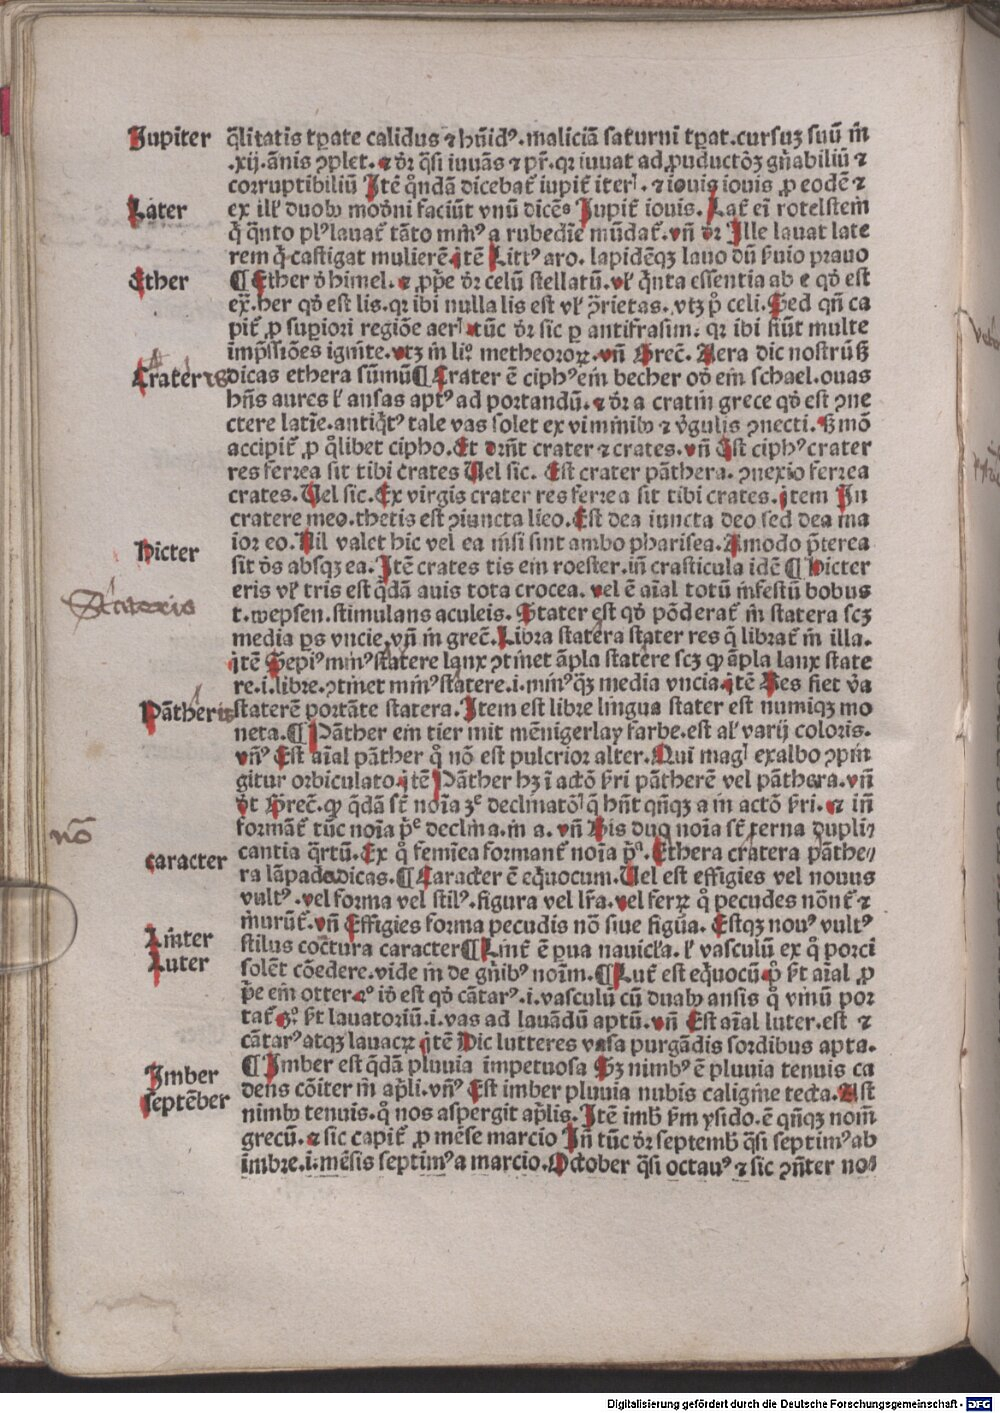 Jupiter
q̄litatis tꝑate calidus ⁊ hūidꝰ. maliciā saturni tꝑat. cursuʒ suū in̄
.xij. ānis ꝯplet. ⁊ dr̄ q̄si iuuās ⁊ pr̄. qꝛ iuuat ad ꝓductōʒ gn̄abiliū ⁊
corruptibiliū Itē q̊ndā dicebat̄ iupit̄ iter. ⁊ iouis iouis ꝓ eodē ⁊
Later
ex illꝭ duobꝰ mod̄ni faciūt vnū dicēs Jupit̄ iouis. Lat̄ ei rotelstein
q̄ q̄nto plꝰ lauat̄ tāto minꝰ a rubedīe mūdat̄. vn̄ dr̄ Ille lauat late
rem q̄ castigat mulierē. itē Littꝰ aro. lapidēqʒ lauo dū ẜuio prauo
Ether
¶ Ether d̓ himel. ⁊ ꝓpͥe dr̄ celū stellatū. vl̓ q̄nta essentia ab e qd̓ est
ex̄. her qd̓ est lis. qꝛ ibi nulla lis est vl̓ ꝯrietas. vtʒ pꝫ celi. Sed qn̄ ca
pit̄ ꝓ suꝑiori regiōe aerꝭ tūc dr̄ sic ꝑ antifrasim. qꝛ ibi fiūt multe
imp̄ssiōes ignīte. vtʒ in liꝰ metheoroꝝ. vn̄ Grec̄. Aera dic nostrū sʒ
Crater is
dicas ethera sūmū ¶ Crater ē ciphꝰ ein becher od̓ ein schael. duas
hn̄s aures l̓ ansas aptꝰ ad portandū. ⁊ dr̄ a cratin grece qd̓ est ꝯne
ctere latīe. antiq̄tꝰ tale vas solet ex viminibꝰ ⁊ v̓gulis ꝯnecti. sʒ mō
accipit̄ ꝓ q̊libet cipho. Et dr̄nt crater ⁊ crates. vn̄ Est ciphꝰ crater
res ferrea sit tibi crates Uel sic. Est crater pāthera. ꝯnexio ferrea
crates. Uel sic. Ex virgis crater res ferrea sit tibi crates. item In
cratere meo. thetis est ꝯiuncta lieo. Est dea iuncta deo sed dea ma
ior eo. Nil valet hic vel ea nisi sint ambo pharisea. Amodo p̄terea
Hicter
sit d̓s absqʒ ea. Itē crates tis ein roester. in̄ crasticula idē ¶ Hicter
eris vl̓ tris est q̄dā auis tota crocea. vel ē aīal totū infestū bobus
Stateris
t. wepsen. stimulans aculeis. Stater est qd̓ pōderat̄ in statera scʒ
media ꝑs vncie. vn̄ in grec̄. Libra statera stater res q̄ librat̄ in illa.
itē Sepiꝰ minꝰ statere lanx ꝯtinet āpla statere scʒ ꝙ āpla lanx state
re. i. libre. ꝯtinet minꝰ statere. i. minꝰ qʒ media vncia. itē Aes fiet v̓a
Pātheris
staterē portāte statera. Item est libre lingua stater est numiqʒ mo
neta. ¶ Pāther ein tier mit mēnigerlay farbe. est al̓ varij coloris.
vn̄ Est aīal pāther quo nō est pulcrior alter. Qui magꝭ ex albo ꝯpin
gitur orbiculato. itē Pāther hʒ ī actō ẜri pātherē vel pāthera. vn̄
dt̄ Grec̄. ꝙ q̄dā st̄ noīa ʒͤ declinatōꝭ q̄ hn̄t qn̄qʒ a in actō ẜri. ⁊ in̄
nō
formāt̄ tūc noīa pͤ declina. in a. vn̄ His duo noīa st̄ terna dupli
caracter
cantia q̄rtū. Ex quo femīea formant̄ noīa pͣ. Ethera cratera pāthe
ra lāpada dicas. ¶ Caracter ē eq̄uocum. Uel est effigies vel nouus
vultꝰ. vel forma vel stilꝰ. figura vel lr̄a. vel ferꝝ quo pecudes nōnt̄ ⁊
inurūt̄. vn̄ Effigies forma pecudis nō siue figūa. Estqʒ nouꝰ vultꝰ
Linter
stilus coctura caracter ¶ Lint̄ ē ꝑua nauicl̓a. l̓ vasculū ex quo porci
Luter
solēt cōedere. vide in de gn̄ibꝰ noīm. ¶ Lut̄ est eq̄uocū pͦ ẜt aīal ꝓ
pͥe ein otter. ꝯͦ id̓ est qd̓ cātarꝰ. i. vasculū cū duabꝰ ansis quo vinū por
tat̄ ʒͦ. ẜt lauatoriū. i. vas ad lauādū aptū. vn̄ Est aīal luter. est ⁊
cātarꝰ atqʒ lauacꝝ itē Dic lutteres vasa purgādis sordibus apta.
Imber
¶ Imber est q̄dā pluuia impetuosa Sʒ nimbꝰ ē pluuia tenuis ca
septēber
dens cōiter in apͥli. vn̄ Est imber pluuia nubis caligine tecta. Ast
nimbꝰ tenuis. quo nos aspergit apͥlis. Itē imb̄ ẜm ysido. ē qn̄qʒ nomē
grecū. ⁊ sic capit̄ ꝓ mēse marcio In̄ tūc dr̄ septemb̄ q̄si septimꝰ ab
imbre. i. mēsis septimꝰ a marcio. October q̄si octauꝰ ⁊ sic ꝯn̄ter no
Digitalisierung gefördert durch die Deutsche Forschungsgemeinschaft - DFG